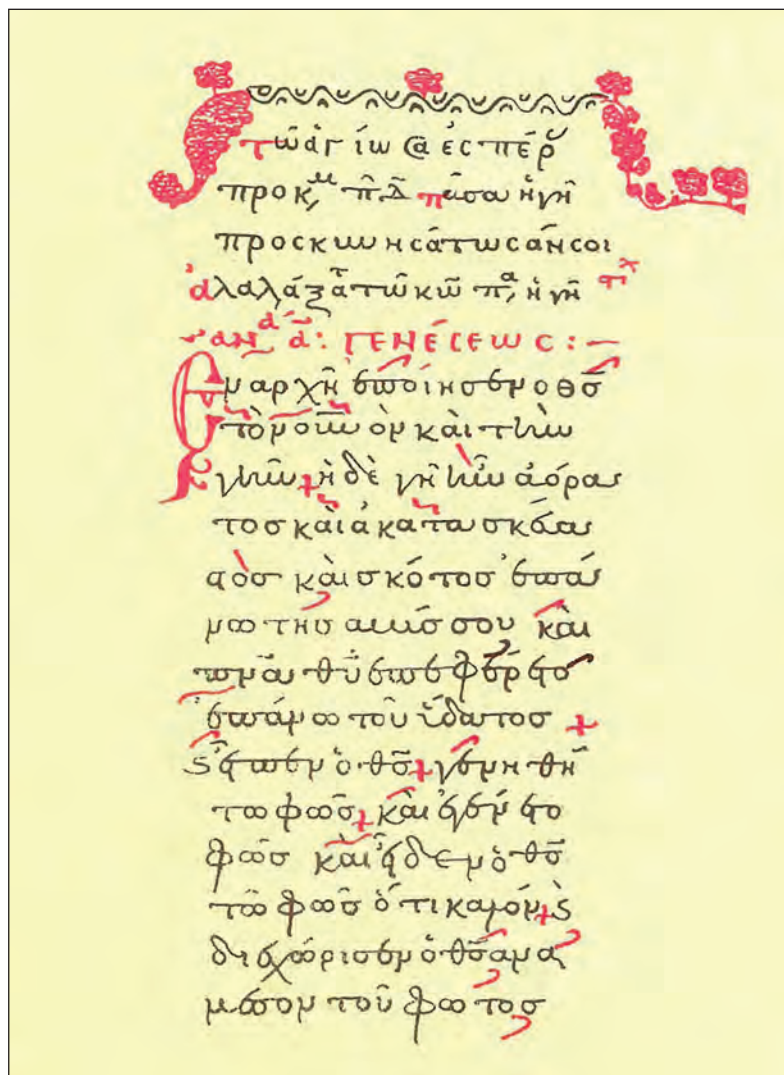 τῶ ἁγίω σα ἐς πέρ
προκ, π δ πᾶσα ἡ γῆ
προσκυνησάτωσάν σοι
ἀλαλάξατω κω πα, ἡ γῆ
ἀνα α: ΓΕΝΈCΕΩC:—
Ἐν ἀρχῆ ἐποίησεν ὁ θσ
τὸν οὐνὸν καὶ τὴν
γῆν + ἡ δὲ γῆ ἦν ἀόρα
τοσ καὶ ἀκατασκέυα
στοσ καὶ σκότοσ ἐπά
νω τησ ἀβύσσου καὶ
πνα θυ ἐπεφέρετο
ἐπάνω τοῦ ὕδατοσ +
ϛ εἶπεν ὁ θσ + γενηθή
τω φῶσ + καὶ ἐγένετο
φῶσ καὶ εἶδεν ὁ θσ
τὸ φῶσ ὅτι καλόν + ϛ
διεχώρισεν ὁ θσ ἀνα
μέσον τοῦ φωτοσ